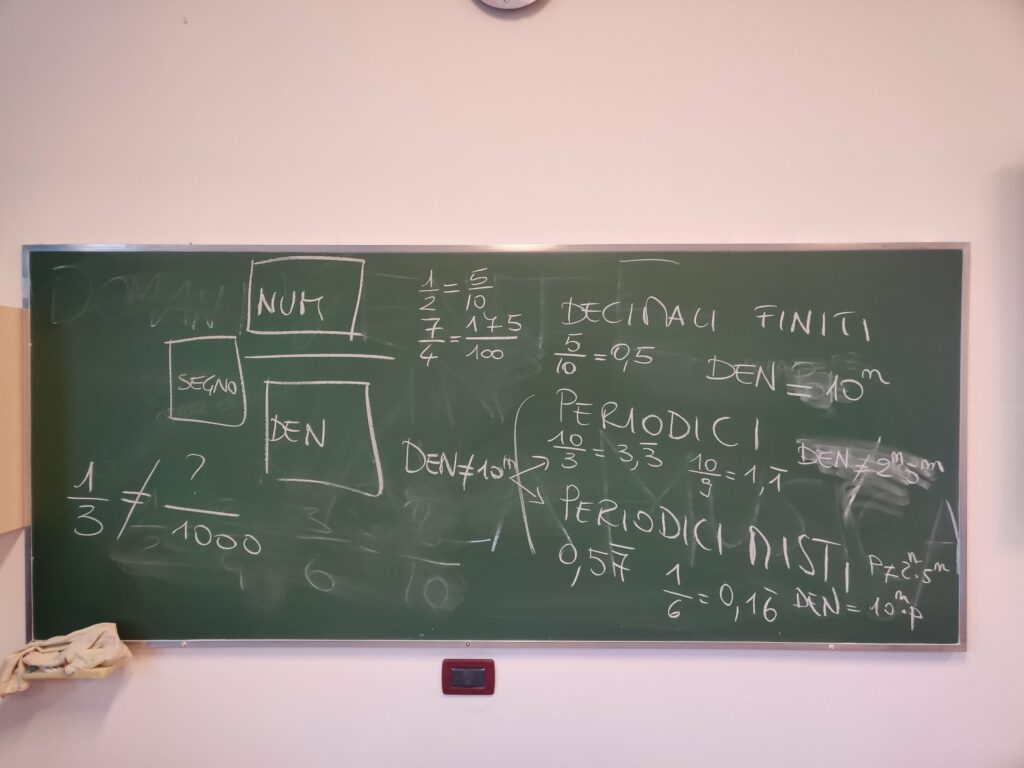 NUM
SEGNO
DEN
1/3 ≠ ?/1000
1/2 = 5/10
7/4 = 175/100
DECIMALI FINITI
5/10 = 0,5
DEN = 10ⁿ
DEN ≠ 10ⁿ
PERIODICI
10/3 = 3,3̅ 10/9 = 1,1̅
PERIODICI MISTI
0,57̅
1/6 = 0,16̅ DEN = 10ⁿ·p